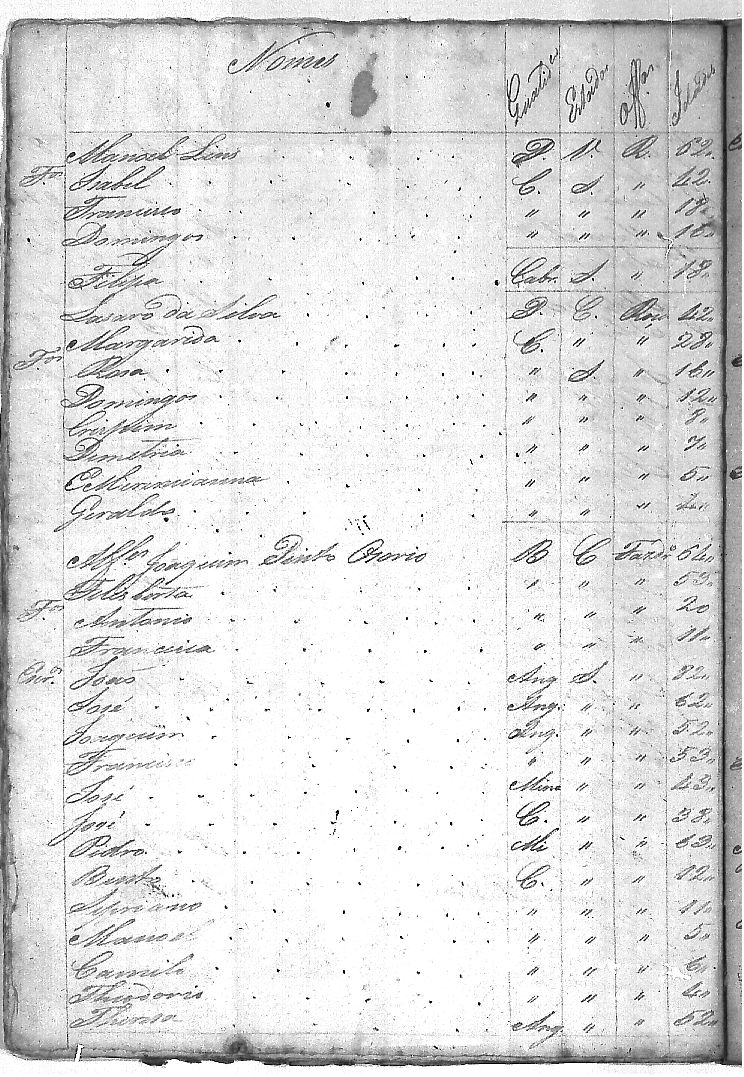 Nomes Qualid.es Estados Off.os Idades
Manoel Lins P. V. R. 62
F.os Izabel C. S. " 42
Francisco " " " 18
Domingos " " " 16
Filipa Cabr. S. " 18
Lasaro da Silva P. C. Roç. 42
Margarida C. " " 28
F.os Rosa " S. " 16
Domingos " " " 12
Crispim " " " 8
Dimitria " " " 7
" " " 5
Geraldo " " "
Alf.es Joaquim Pinto Ozorio B C Fazdr.o 64
Felisberta " " " 53
F.os Antonio " " " 20
Francisca " " " 11
Escr.os João Ang S. " 82
José Ang. " " 62
Joaquim Ang. " " 52
Francisco " " " 53
José Mina " " 43
José C. " " 38
Pedro Mi " " 63
Bento C. " " 12
Sipriano " " " 11
Manoel " " " 5
Camilo " " " 6
Thiodorio " " " 4
Thereza Ang. " " 52